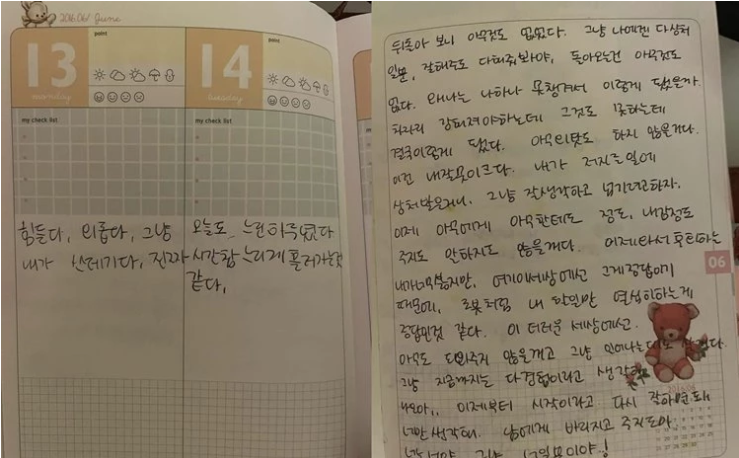 2016.06/ June
13
monday
point
my check list
힘들다, 외롭다, 그냥
내가 쓰레기다, 진짜
14
tuesday
point
my check list
오늘도 느린하루였다
시간참 느리게 흘러가는것
같다.
뒤돌아 보니 아무것도 없었다. 그냥 나에겐 다상처
일뿐, 잘해주도 다해줘봐야, 돌아오는건 아무것도
없다. 왜나는 나하나 못챙겨서 이렇게 됐을까.
차라리 강해져야하는데 그것도 못하는데
결국이렇게 됐다. 아무의탓도 하지 않을거다.
이건 내잘못이크다. 내가 저지른일에
상처받은거니. 그냥 잘생각하고 넘기려고하자.
이제 아무에게 아무한테도 정도, 내감정도
주지도 안하지도 않을꺼다. 이제와서 후회하는
내가너무싫지만, 여기이세상에선 그게정답이기
때문에, 로봇처럼 내 할일만 열심히하는게
정답인것 같다. 이 더러운 세상에선.
아무도 도와주지 않을꺼고 그냥
그냥 지금까지는 다경험이라고 생각해
이제부터 시작이라고 다시 잘하면돼
너만생각해. 남에게 바라지고 주지도마
06
2016.06